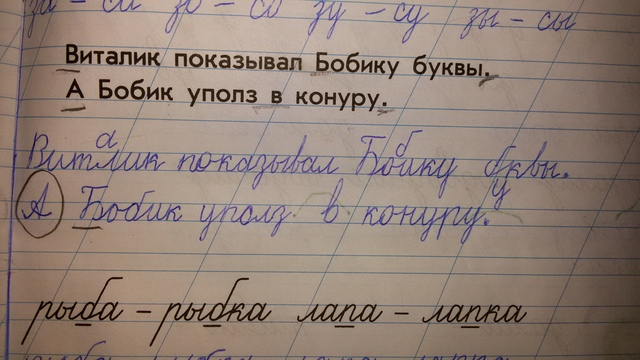 за – са зо – со зу – су зы – сы
Виталик показывал Бобику буквы.
А Бобик уполз в конуру.
Виталик показывал Бобику буквы.
А Бобик уполз в конуру.
рыба – рыбка лапа – лапка